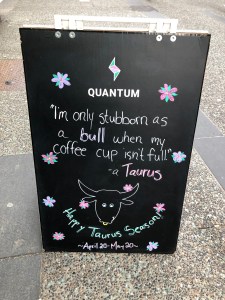 QUANTUM
"I'm only stubborn as
a bull when my
coffee cup isn't full."
-a Taurus
Happy Taurus Season!
~April 20-May 20~